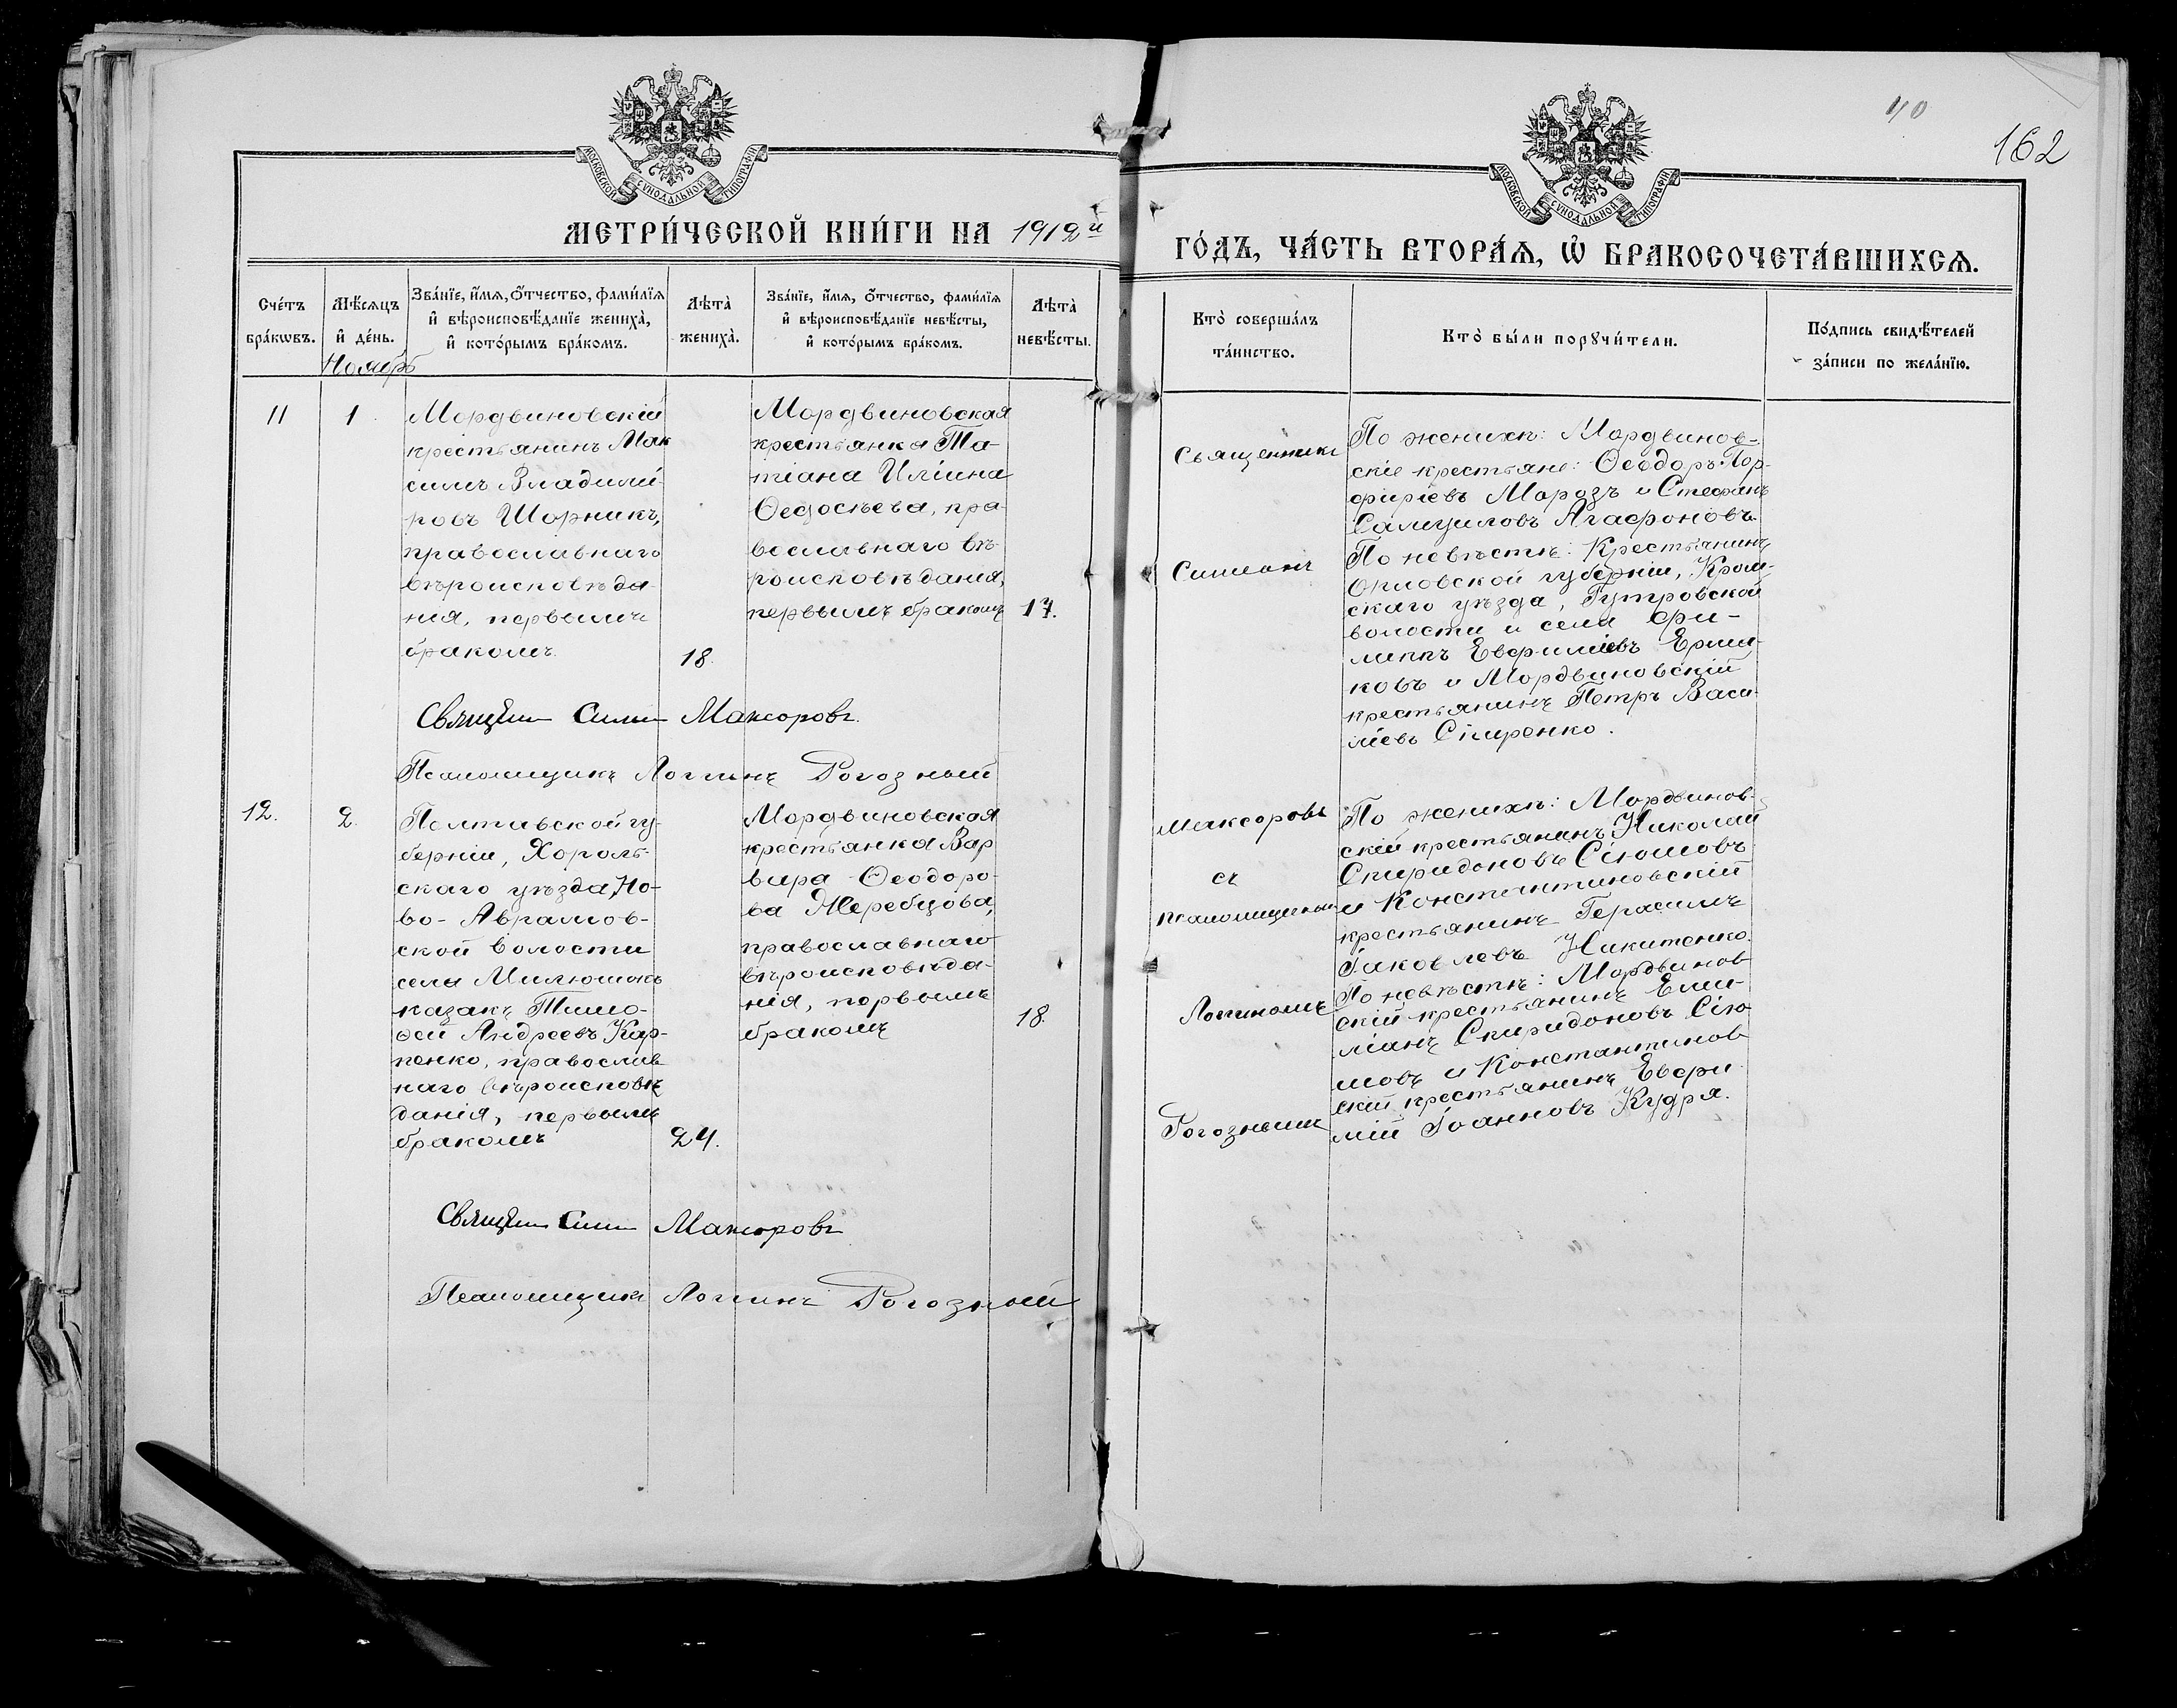 40
162
МОСКОВСКОЙ СѴНОДАЛЬНОЙ ТИПОГРАФІИ
МОСКОВСКОЙ СѴНОДАЛЬНОЙ ТИПОГРАФІИ
МЕТРИ́ЧЕСКОЙ КНИ́ГИ НА 1912й
ГО́ДЪ, ЧА́СТЬ ВТОРА́Ѧ, Ѡ҆ БРАКОСОЧЕТА́ВШИХСѦ.
Сче́тъ
бра́кѡвъ.
Мѣ́сяцъ
и҆ де́нь.
Ноябрь
Зва́нїе, и҆́мѧ, ѻ҆́тчество, фами́лїѧ
и҆ вѣроисповѣ́данїе жениха̀,
и҆ кото́рымъ бра́комъ.
Лѣта̀
жениха̀.
Зва́нїе, и҆́мѧ, ѻ҆́тчество, фами́лїѧ
и҆ вѣроисповѣ́данїе невѣ́сты,
и҆ кото́рымъ бра́комъ.
Лѣта̀
невѣ́сты.
Кто̀ соверша́лъ
та́инство.
Кто̀ бы́ли порꙋчи́тели.
По́дпись свидѣ́телей
за́писи по жела́нїю.
11
1
Мордвиновскій
крестьянинъ Мак
симъ Владимі-
ровъ Шорникъ,
православнаго
вѣроисповѣда-
нія, первымъ
бракомъ.
18.
Мордвиновская
крестьянка Та-
тіана Иліина
Ѳедосѣева, пра-
вославнаго вѣ-
роисповѣданія,
первымъ бракомъ
17.
Священникъ
Симеонъ
По женихѣ: Мордвинов-
скіе крестьяне: Ѳеодоръ Пор-
фиріевъ Морозъ и Стефанъ
Самуиловъ Агафоновъ.
По невѣстѣ: Крестьянинъ
Орловской губерніи, Кром-
скаго уѣзда, Гутровской
волости и села Фи-
липпъ Евфиміевъ Ерми-
ковъ и Мордвиновскій
крестьянинъ Петръ Васи-
ліевъ Сіиренко.
Священ Симе Мажоровъ.
Псаломщикъ Логгинъ Рогозный
12.
2.
Полтавской гу-
берніи, Хороль-
скаго уѣзда, Но-
во-Аврамов-
ской волости
села Милюшокъ
казакъ Тимо-
ѳей Андреевъ Кар-
пенко, православ
наго вѣроисповѣ
данія, первымъ
бракомъ
24.
Мордвиновская
крестьянка Вар
вара Ѳеодоро-
ва Жеребцова,
православнаго
вѣроисповѣда-
нія, первымъ
бракомъ
18.
Мажоровъ
съ
псаломщикомъ
Логгиномъ
Рогознымъ
По женихѣ: Мордвинов-
скій крестьянинъ Николай
Спиридоновъ Сіюмовъ
и Константиновскій
крестьянинъ Герасимъ
Іаковлевъ Никитенко.
По невѣстѣ: Мордвинов-
скій крестьянинъ Еми-
ліанъ Спиридоновъ Сію-
мовъ и Константинов
скій крестьянинъ Евфи-
мій Іоанновъ Кудря.
Священ Симе Мажоровъ
Псаломщикъ Логгинъ Рогозный